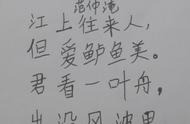 范仲淹
江上往来人，
但爱鲈鱼美。
君看一叶舟，
出没风波里